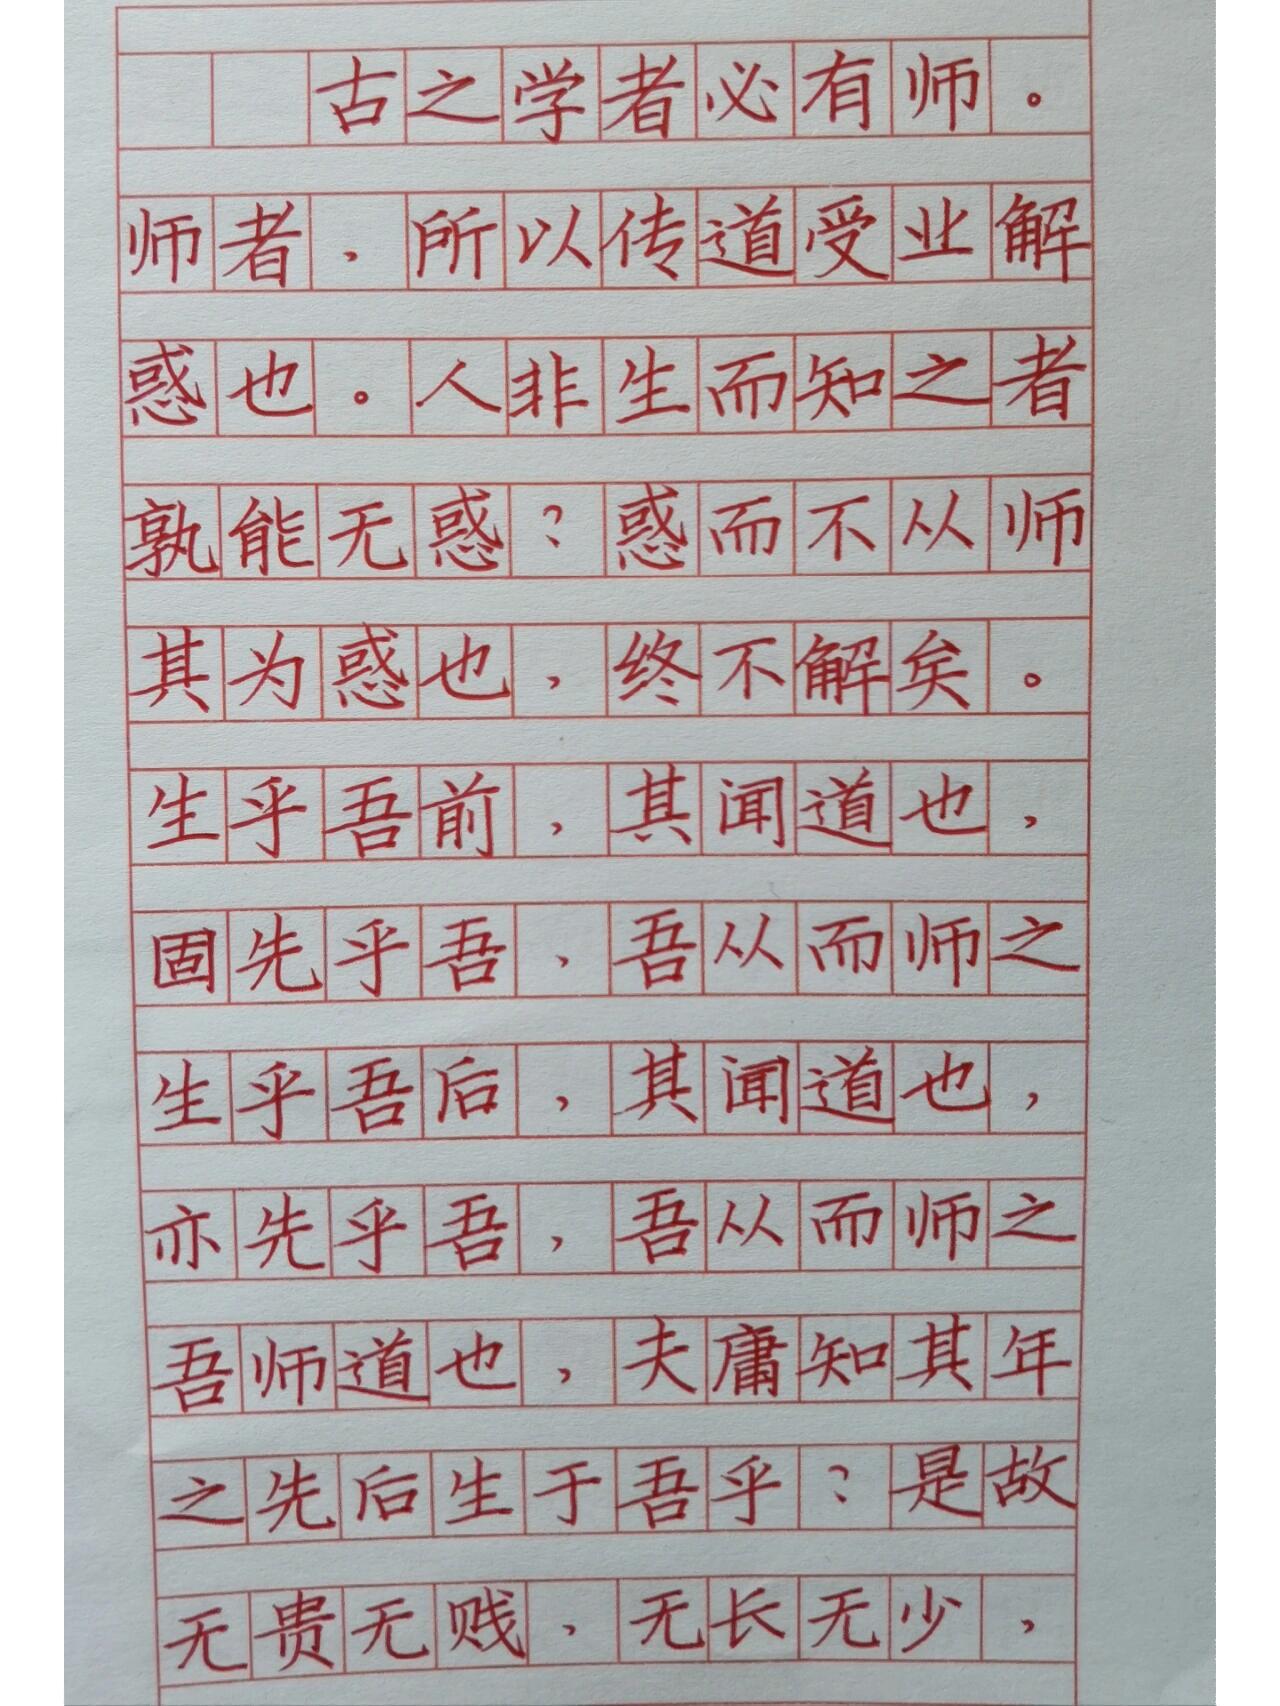 古之学者必有师。
师者,所以传道受业解
惑也。人非生而知之者
孰能无惑?惑而不从师
其为惑也,终不解矣。
生乎吾前,其闻道也,
固先乎吾,吾从而师之
生乎吾后,其闻道也,
亦先乎吾,吾从而师之
吾师道也,夫庸知其年
之先后生于吾乎?是故
无贵无贱,无长无少,